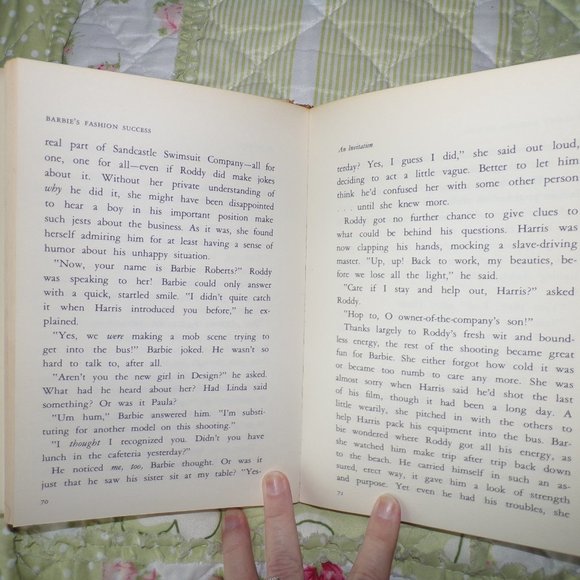 BARBIE'S FASHION SUCCESS
real part of Sandcastle Swimsuit Company—all for
one, one for all—even if Roddy did make jokes
about it. Without her private understanding of
why he did it, she might have been disappointed
to hear a boy in his important position make
such jests about the business. As it was, she found
herself admiring him for at least having a sense of
humor about his unhappy situation.
"Now, your name is Barbie Roberts?" Roddy
was speaking to her! Barbie could only answer
with a quick, startled smile. "I didn't quite catch
it when Harris introduced you before," he ex-
plained.
"Yes, we were making a mob scene trying to
get into the bus!" Barbie joked. He wasn't so
hard to talk to, after all.
"Aren't you the new girl in Design?" he asked.
What had he heard about her? Had Linda said
something? Or was it Paula?
"Um hum," Barbie answered him. "I'm substi-
tuting for another model on this shooting."
"I thought I recognized you. Didn't you have
lunch in the cafeteria yesterday?"
He noticed me, too, Barbie thought. Or was it
just that he saw his sister sit at my table? "Yes-
70
An Invitation
terday? Yes, I guess I did," she said out loud,
deciding to act a little vague. Better to let him
think he'd confused her with some other person
. . . . until she knew more.
Roddy got no further chance to give clues to
what could be behind his questions. Harris was
now clapping his hands, mocking a slave-driving
master. "Up, up! Back to work, my beauties, be-
fore we lose all the light," he said.
"Care if I stay and help out, Harris?" asked
Roddy.
"Hop to, O owner-of-the-company's son!"
Thanks largely to Roddy's fresh wit and bound-
less energy, the rest of the shooting became great
fun for Barbie. She either forgot how cold it was
or became too numb to care any more. She was
almost sorry when Harris said he'd shot the last
of his film, though it had been a long day. A
little wearily, she pitched in with the others to
help Harris pack his equipment into the bus. Bar-
bie wondered where Roddy got all his energy, as
she watched him make trip after trip back down
to the beach. He carried himself in such an as-
sured, erect way, it gave him a look of strength
and purpose. Yet even he had his troubles, she
71